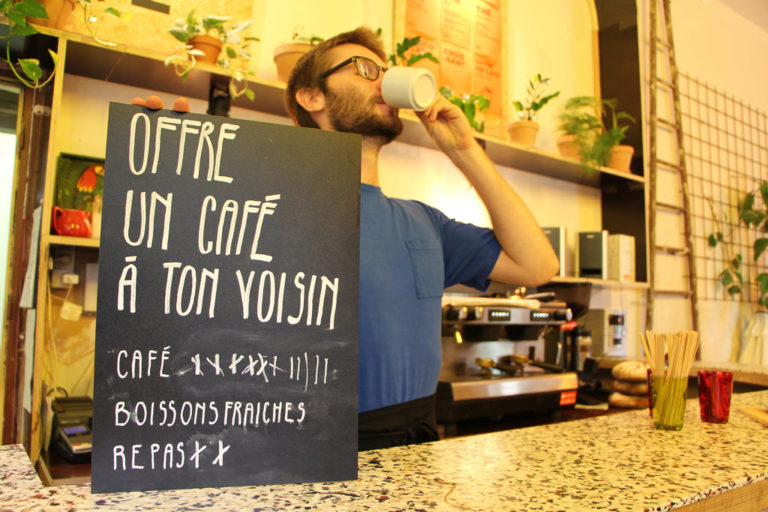 OFFRE
UN CAFÉ
Á TON VOISIN
CAFÉ
BOISSONS FRAICHES
REPAS